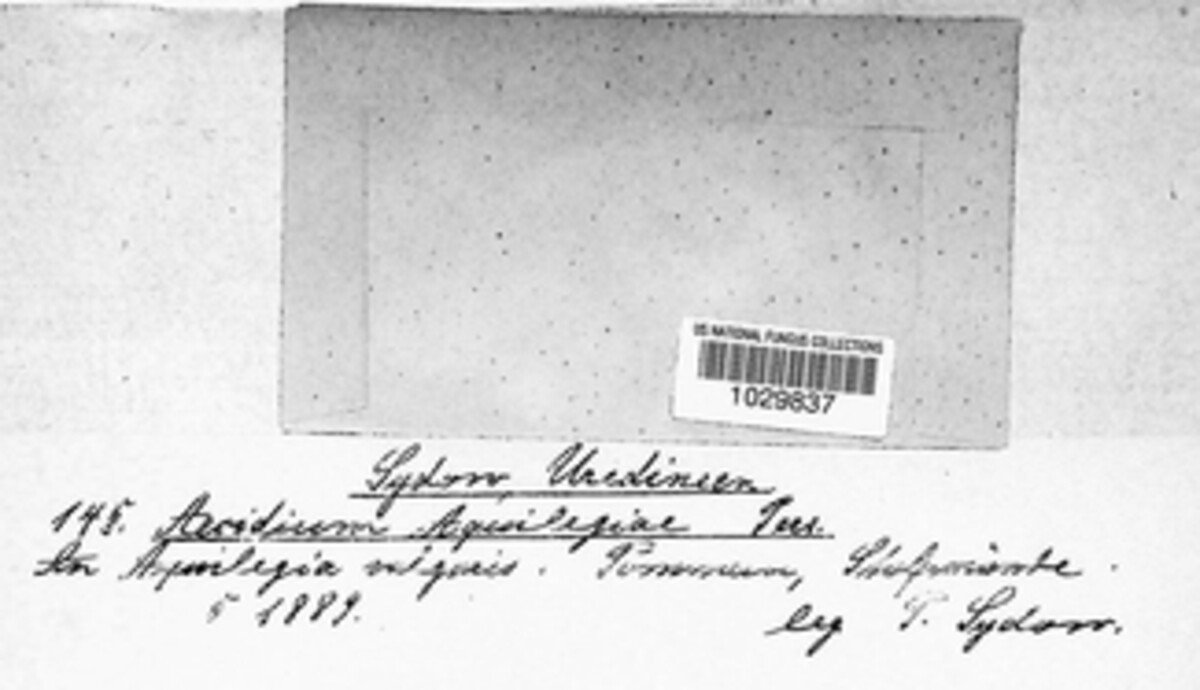 US NATIONAL FUNGUS COLLECTIONS
1029837
Sydow, Uredineen
145. Aecidium Aquilegiae Pers.
An Aquilegia vulgaris. Pommern, Stolpmünde.
5 1889.
leg P. Sydow.